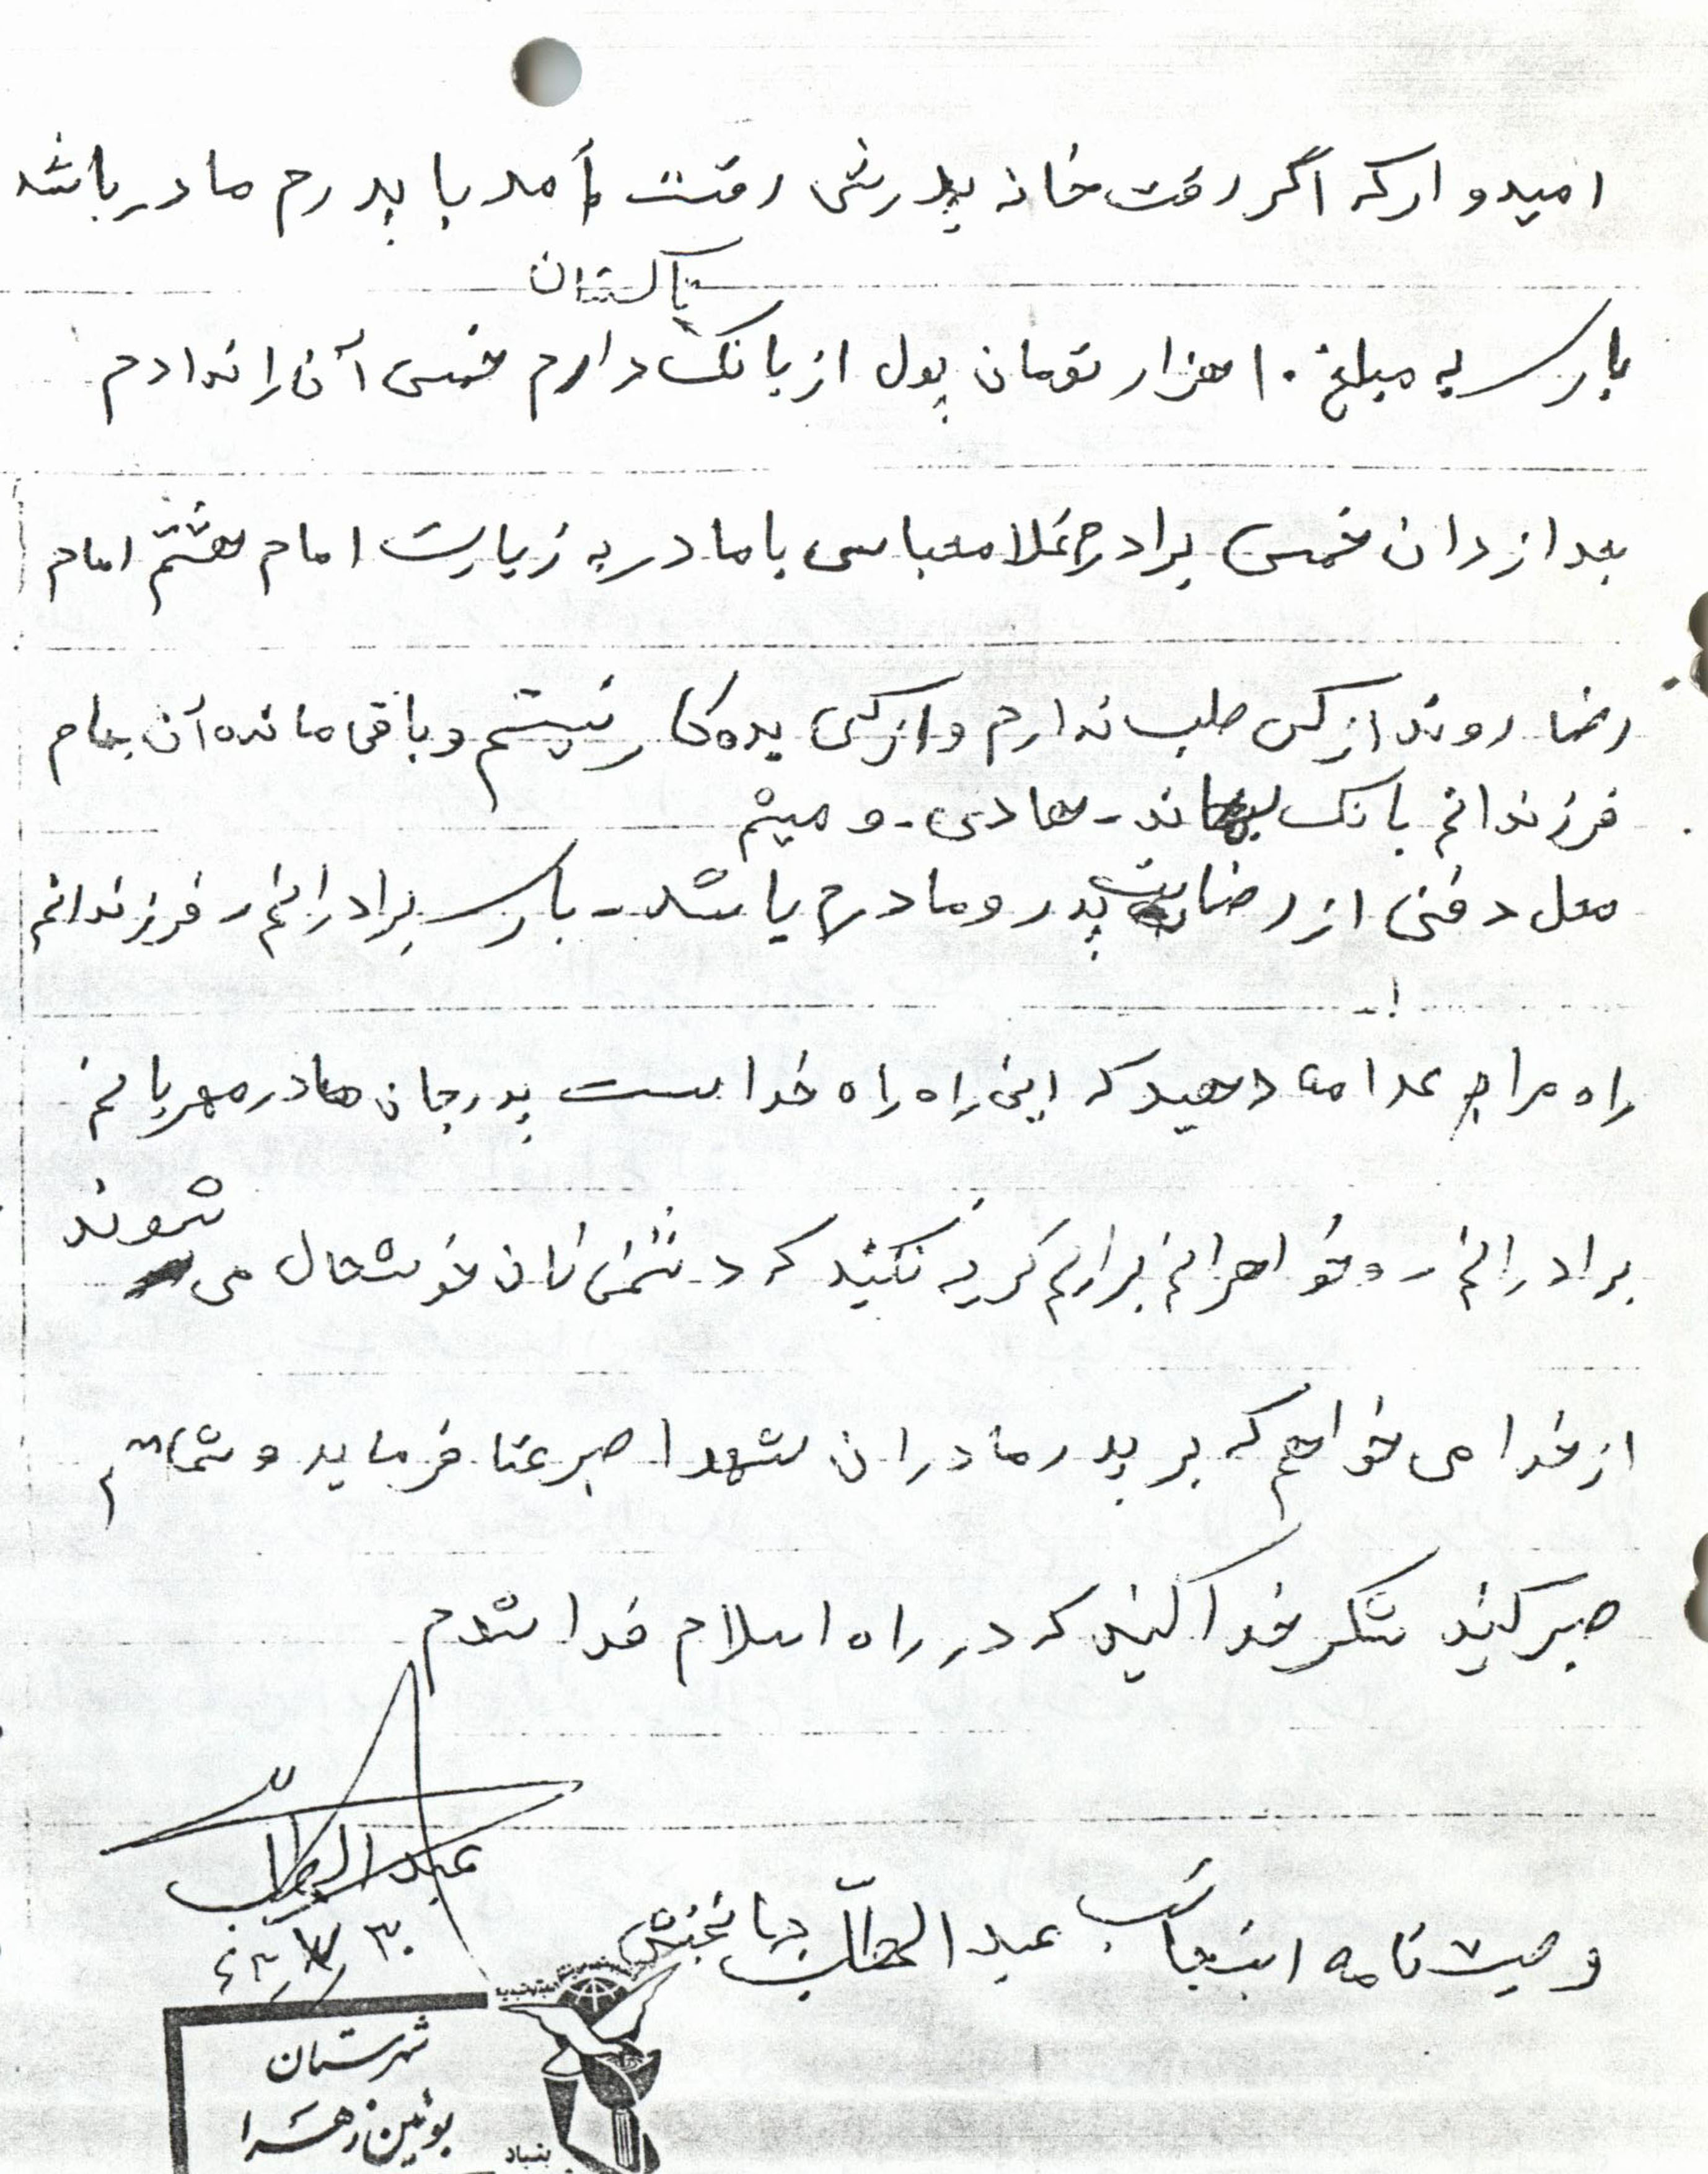 امیدوارکه اگر رفت خانه پدرش رفت آمد با پدرم مادر باشد
پاکستان
بارس به مبلغ ۱۰ هزار تومان پول از بانک دارم خمس آن را ندادم
بعد از دان خمس برادرم غلامعباس با مادر به زیارت امام هشتم امام
رضا روند از کس طلب ندارم و از کسی بده کار نیستم و باقی مانده آن بنام
فرزندانم بانک بماند - هادی - و میثم
محل دفنی از رضایت پدر و مادرم باشد - بارس برادرانم ر فرزندانم
راه مرا ادامه دهید که این راه راه خداست پدرجان مادر مهربانم
برادرانم ر و خواهرانم برایم گریه نکنید که دشمنانان خوشحال می
شوند
از خدا می خواهم که بر پدر مادران شهدا صبر عتا فرماید و شما هم
صبر کنید شکر خدا کنید که در راه اسلام فدا شدم
عبدالمطلب
وصیت نامه اینجانب عبدالمطلب جهانبخش
۶۳/۷/۳۰
شهرستان
بوئین زهرا
بنیاد